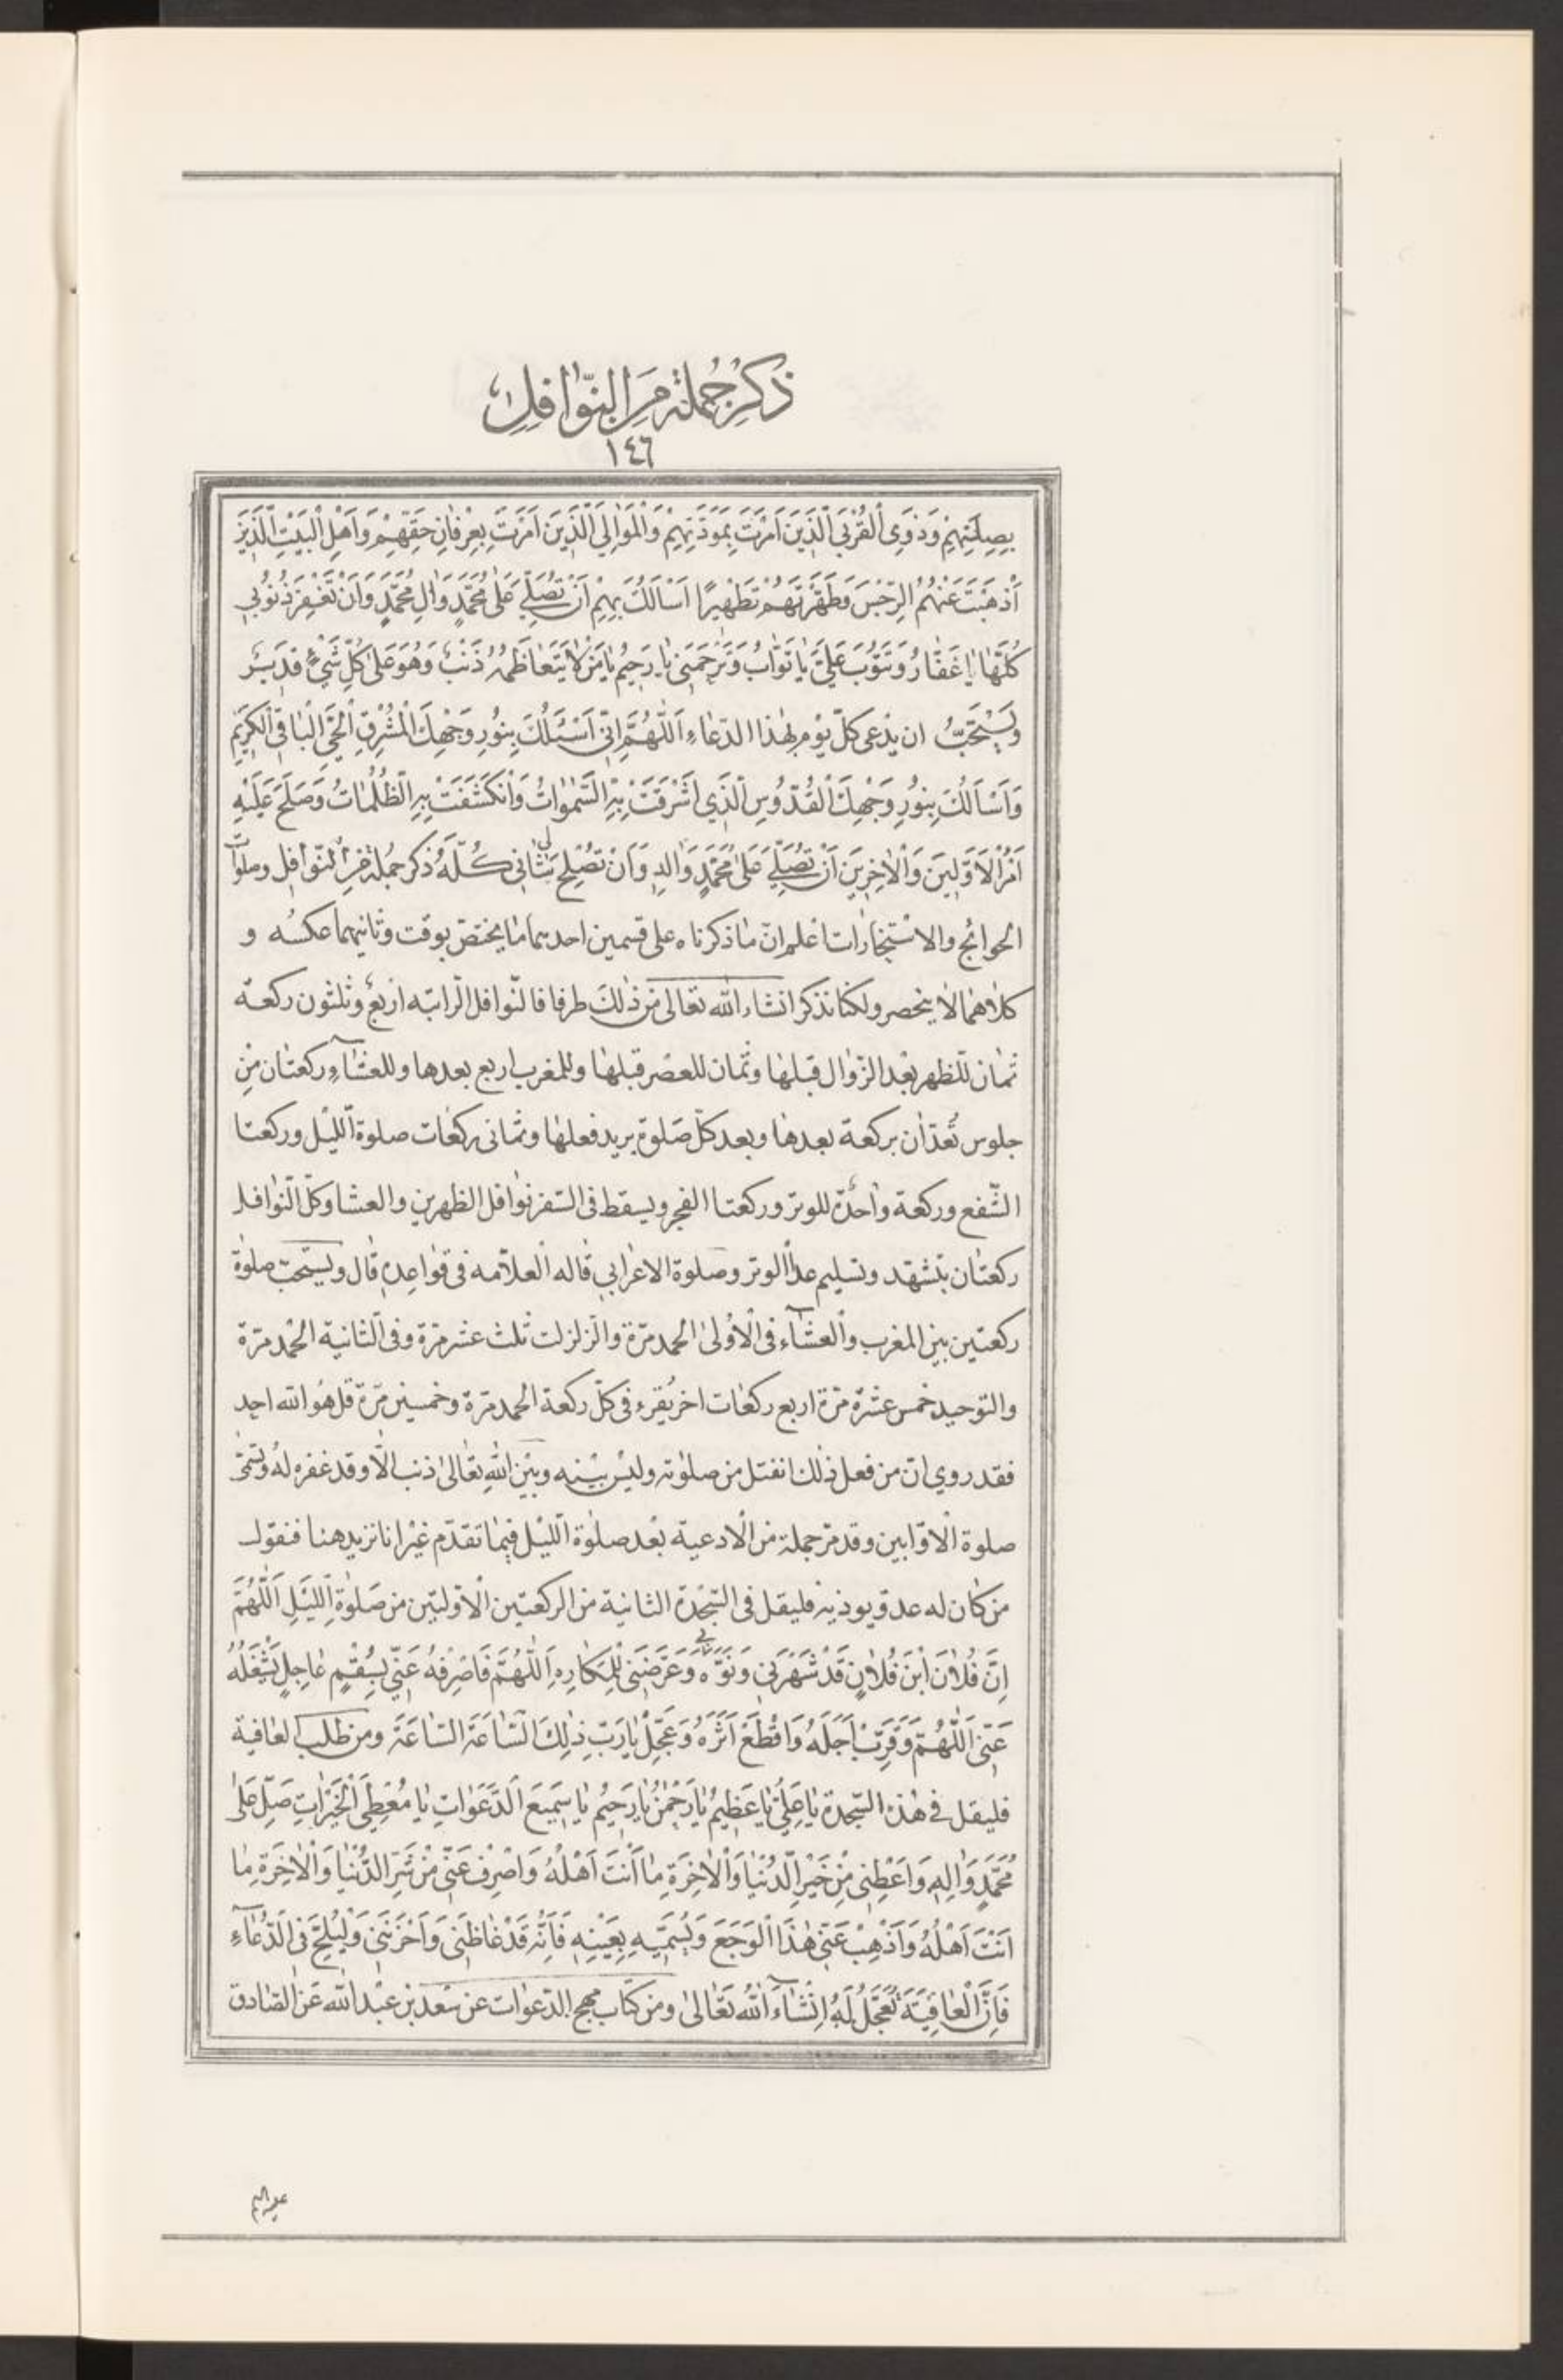 ذِكْرُ جُمْلَةٍ مِنَ النَّوَافِلِ
١٤٦
بِصِلَتِهِمْ وَذَوِي الْقُرْبَى الَّذِينَ اَمَرْتَ بِمَوَدَّتِهِمْ وَالْمَوَالِي الَّذِينَ اَمَرْتَ بِعِرْفَانِ حَقِّهِمْ وَاَهْلِ الْبَيْتِ الَّذِينَ
اَذْهَبْتَ عَنْهُمُ الرِّجْسَ وَطَهَّرْتَهُمْ تَطْهِيرًا اَسْاَلُكَ بِهِمْ اَنْ تُصَلِّيَ عَلَى مُحَمَّدٍ وَالِ مُحَمَّدٍ وَاَنْ تَغْفِرَ ذُنُوبِي
كُلَّهَا يَا غَفَّارُ وَتَتُوبَ عَلَيَّ يَا تَوَّابُ وَتَرْحَمَنِي يَا رَحِيمُ يَا مَنْ لَا يَتَعَاظَمُهُ ذَنْبٌ وَهُوَ عَلَى كُلِّ شَيْءٍ قَدِيرٌ
وَيُسْتَحَبُّ ان يدعى كلّ يوم بهذا الدّعاءِ اَللّهُمَّ اِنّي اَسْئَلُكَ بِنُورِ وَجْهِكَ الْمُشْرِقِ الْحَيِّ الْبَاقِي الْكَرِيمِ
وَاَسْاَلُكَ بِنُورِ وَجْهِكَ الْقُدُّوسِ الَّذِي اَشْرَقَتْ بِهِ السَّمٰوَاتُ وَانْكَشَفَتْ بِهِ الظُّلُمَاتُ وَصَلَحَ عَلَيْهِ
اَمْرُ الْاَوَّلِينَ وَالْاٰخِرِينَ اَنْ تُصَلِّيَ عَلَى مُحَمَّدٍ وَالِهِ وَاَنْ تُصْلِحَ لِي شَأْنِي كُلَّهُ ذكر جملة من النّوافل وصلوات
الحوائج والاستخارات اعلم انّ ما ذكرناه على قسمين احدهما ما يختصّ بوقت وثانيهما عكسه و
كلاهما لا ينحصر ولكنّا نذكر انشاء الله تعالى من ذلك طرفا فالنّوافل الرّاتبه اربع وثلثون ركعة
ثمان للظهر بعد الزّوال قبلها وثمان للعصر قبلها وللمغرب اربع بعدها وللعشاء ركعتان من
جلوس تعدّان بركعة بعدها وبعد كلّ صلوة يريد فعلها وثماني ركعات صلوة الليل وركعتا
الشّفع وركعة واحدة للوتر وركعتا الفجر ويسقط في السّفر نوافل الظهرين والعشا وكلّ النّوافل
ركعتان بتشهّد وتسليم عدا الوتر وصلوة الاعرابي قاله العلّامه في قواعده قال ويستحبّ صلوة
ركعتين بين المغرب والعشاء في الاولى الحمد مرّة والزلزلت ثلث عشر مرّة وفي الثانية الحمد مرّة
والتوحيد خمس عشرة مرّة اربع ركعات اخر يقرء في كلّ ركعة الحمد مرّة وخمسين مرّة قل هو الله احد
فقد روي انّ من فعل ذلك انفتل من صلوته وليس بينه وبين الله تعالى ذنب الّا وقد غفره له وتسمّى
صلوة الاوّابين وقد مرّ جملة من الادعية بعد صلوة الليل فيما تقدّم غير انا نزيد هنا فنقول
من كان له عدوّ يوذيه فليقل في السّجدة الثانية من الركعتين الاوّلتين من صلوة الليل اَللّهُمَّ
اِنَّ فُلَانَ ابْنَ فُلَانٍ قَدْ شَهَرَنِي وَنَوَّهَ بِي وَعَرَضَنِي لِلْمَكَارِهِ اَللّهُمَّ فَاصْرِفْهُ عَنِّي بِسُقْمٍ عَاجِلٍ يَشْغَلُهُ
عَنِّي اَللّهُمَّ وَقَرِّبْ اَجَلَهُ وَاقْطَعْ اَثَرَهُ وَعَجِّلْ يَا رَبِّ ذٰلِكَ السَّاعَةَ السَّاعَةَ ومن طلب العافية
فليقل في هذه السّجدة يَا عَلِيُّ يَا عَظِيمُ يَا رَحْمٰنُ يَا رَحِيمُ يَا سَمِيعَ الدَّعَوَاتِ يَا مُعْطِيَ الْخَيْرَاتِ صَلِّ عَلَى
مُحَمَّدٍ وَالِهِ وَاَعْطِنِي مِنْ خَيْرِ الدُّنْيَا وَالْاٰخِرَةِ مَا اَنْتَ اَهْلُهُ وَاصْرِفْ عَنِّي مِنْ شَرِّ الدُّنْيَا وَالْاٰخِرَةِ مَا
اَنْتَ اَهْلُهُ وَاَذْهِبْ عَنِّي هٰذَا الْوَجَعَ وَيُسَمِّيهِ بِعَيْنِهِ فَاِنَّهُ قَدْ غَاظَنِي وَاَحْزَنَنِي وَلْيُلِحَّ فِي الدُّعَاءِ
فَاِنَّ الْعَافِيَةَ تُعَجَّلُ لَهُ اِنْشَاءَ اللهُ تَعَالَى ومن كتاب مهج الدّعوات عن سعد بن عبد الله عن الصّادق